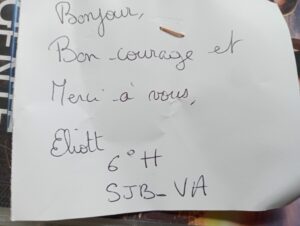 Bonjour,
Bon courage et
Merci à vous,
Eliott
6° H
SJB-VA